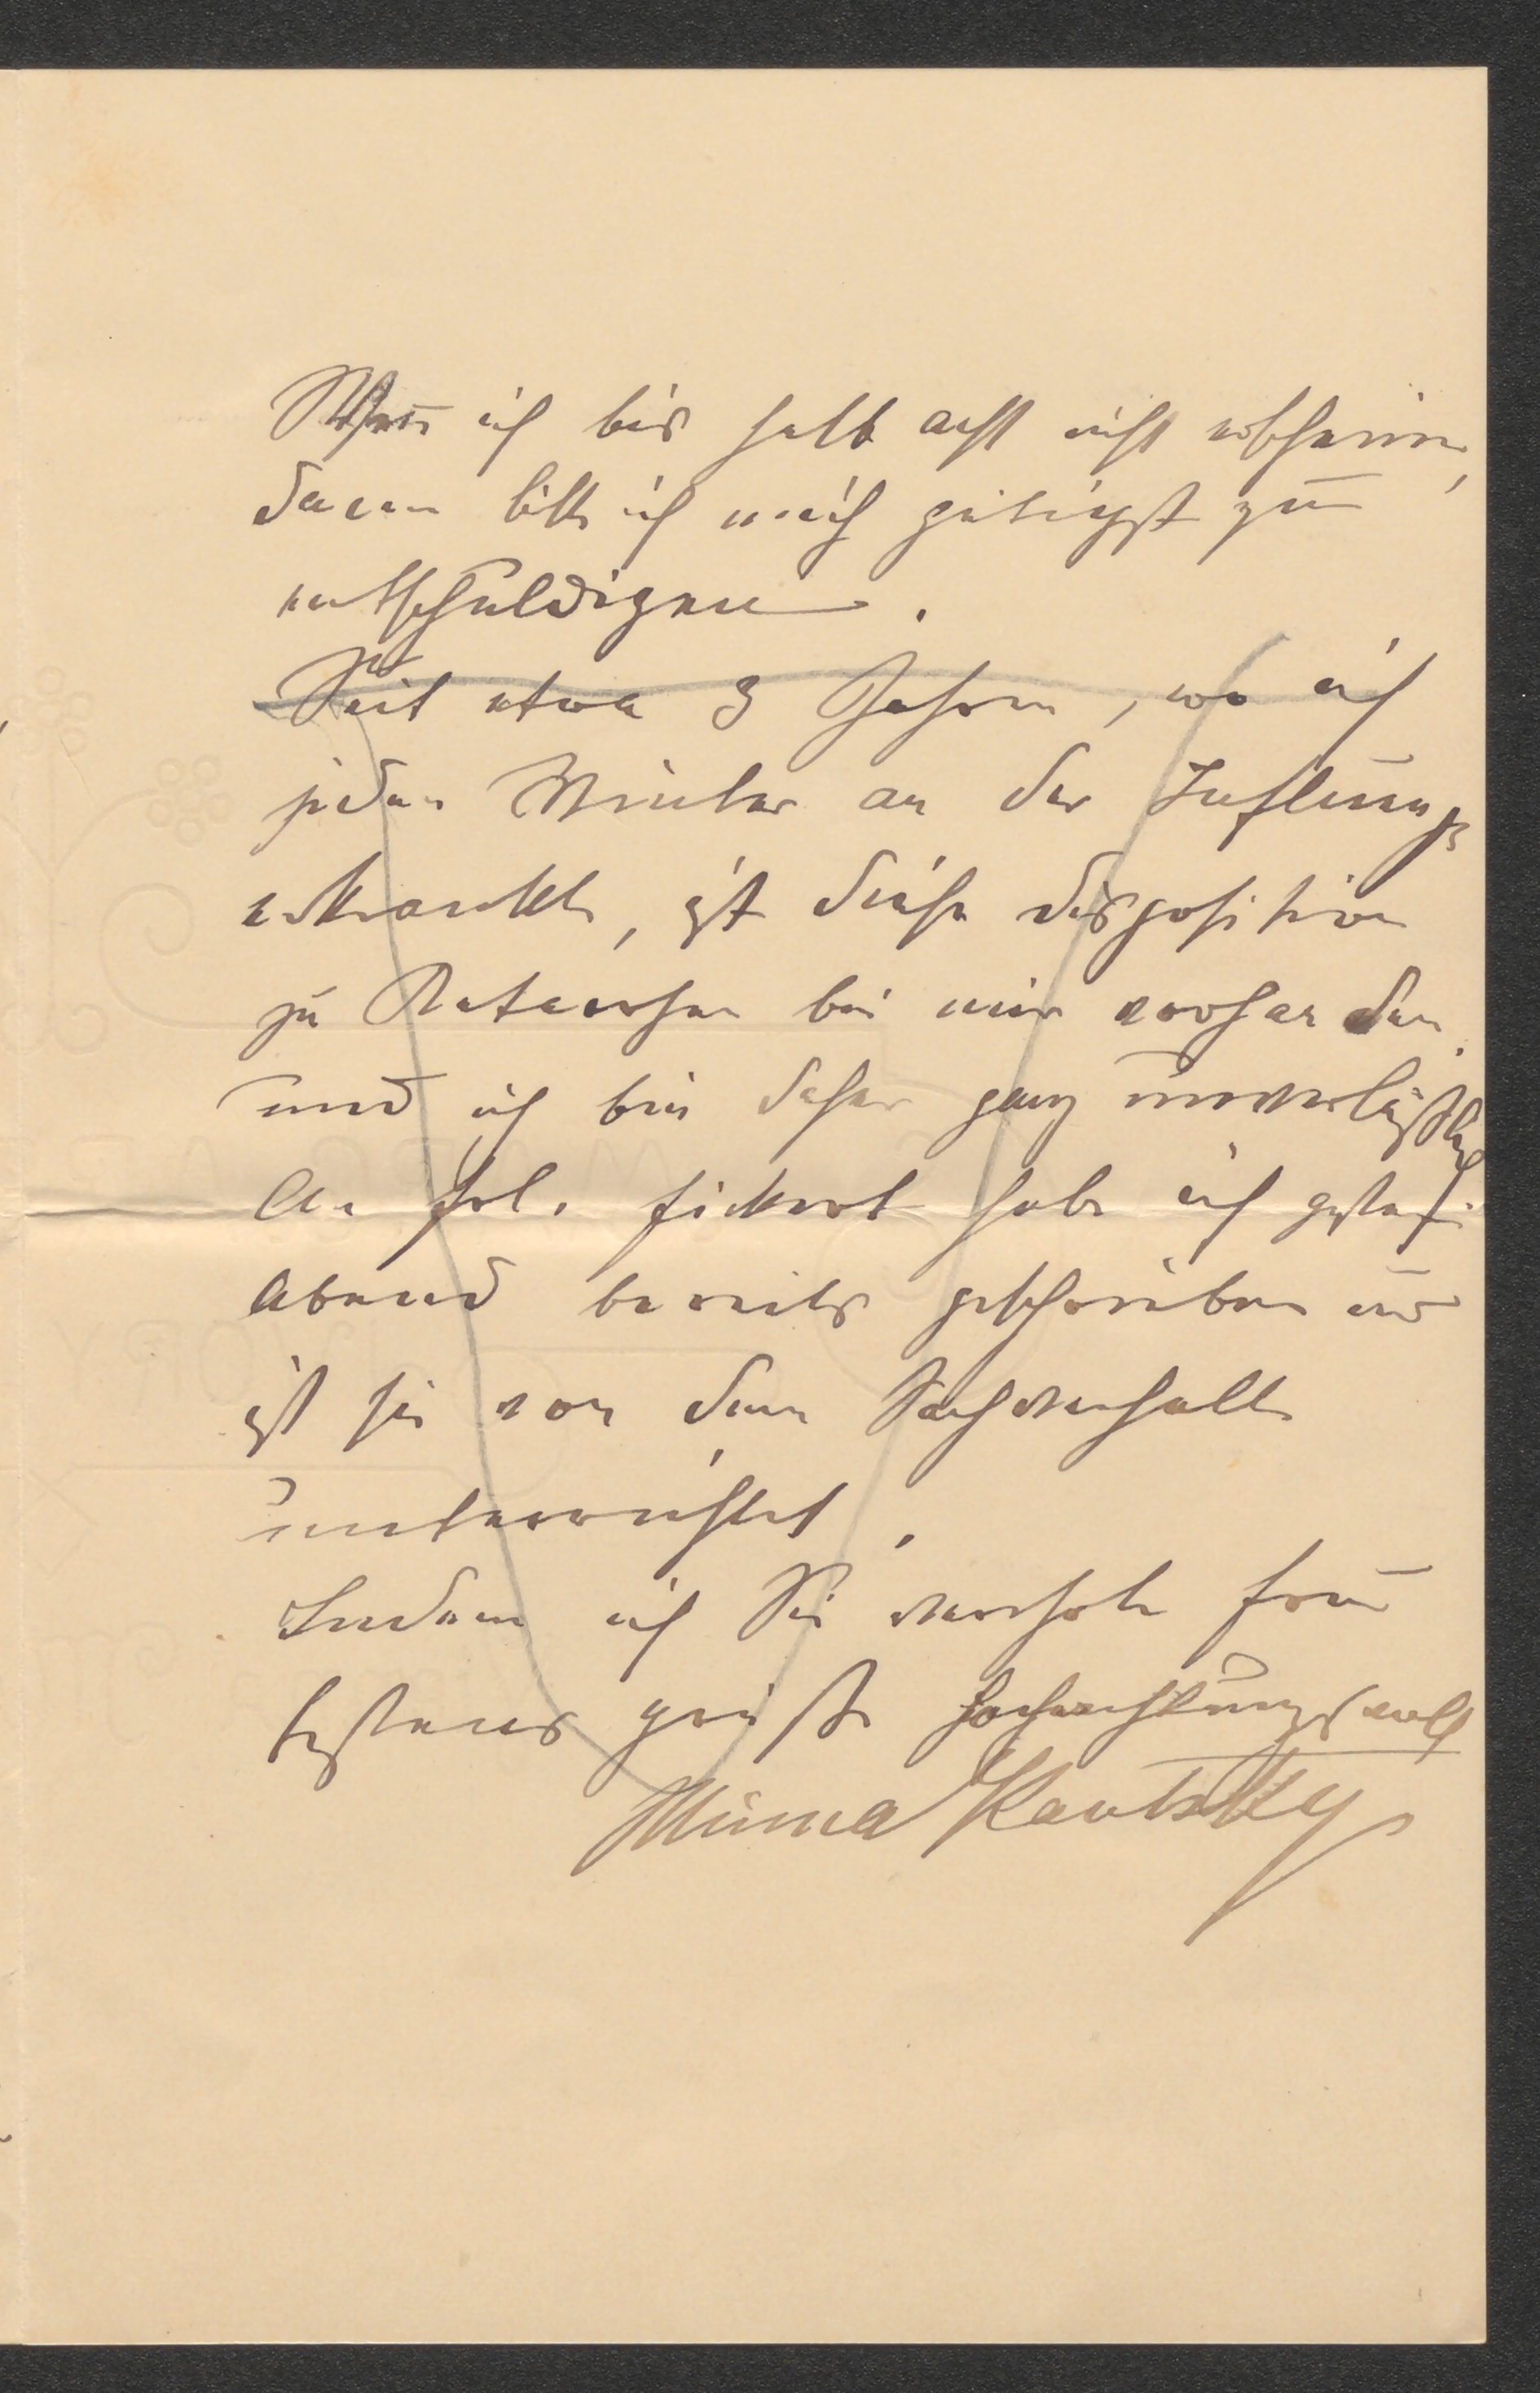 Wenn ich bis halb acht nicht erscheine,
dann bitte ich mich gütigst zu
entschuldigen.
Seit etwa 3 Jahren, wo ich
jeden Winter an der Influenza
erkrankte, ist diese Disposition
zu Katarrhen bei mir vorhanden
und ich bin daher ganz unverläßlich.
An Frl. Fickert habe ich gestern
Abend bereits geschrieben und
ist sie von dem Sachverhalte
unterrichtet.
Indem ich Sie verehrte Frau
bestens grüße hochachtungsvoll
Minna Kautsky